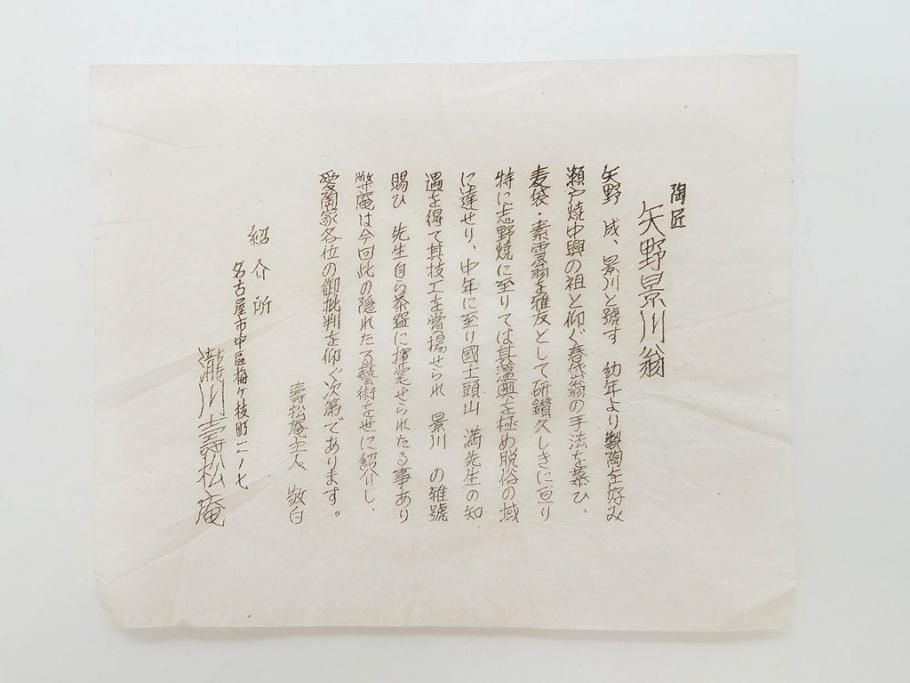 陶匠
矢野景川翁
矢野 成、景川と號す 幼年より製陶を好み
瀬戸焼中興の祖と仰ぐ春岱翁の手法を慕ひ、
麦袋・素雲翁を雅友として研鑚久しきに亘り
特に志野焼に至りては其薀奥を極め脱俗の域
に達せり、中年に至り國士頭山 満先生の知
遇を得て其技工を賞揚せられ 景川 の雅號
賜ひ 先生自ら茶盌に揮毫せられたる事あり
弊庵は今回此の隠れたる藝術を世に紹介し、
愛陶家各位の御批判を仰ぐ次第であります。
壽松庵主人 敬白
紹介所
名古屋市中區梅ヶ枝町二ノ七
瀧川壽松庵